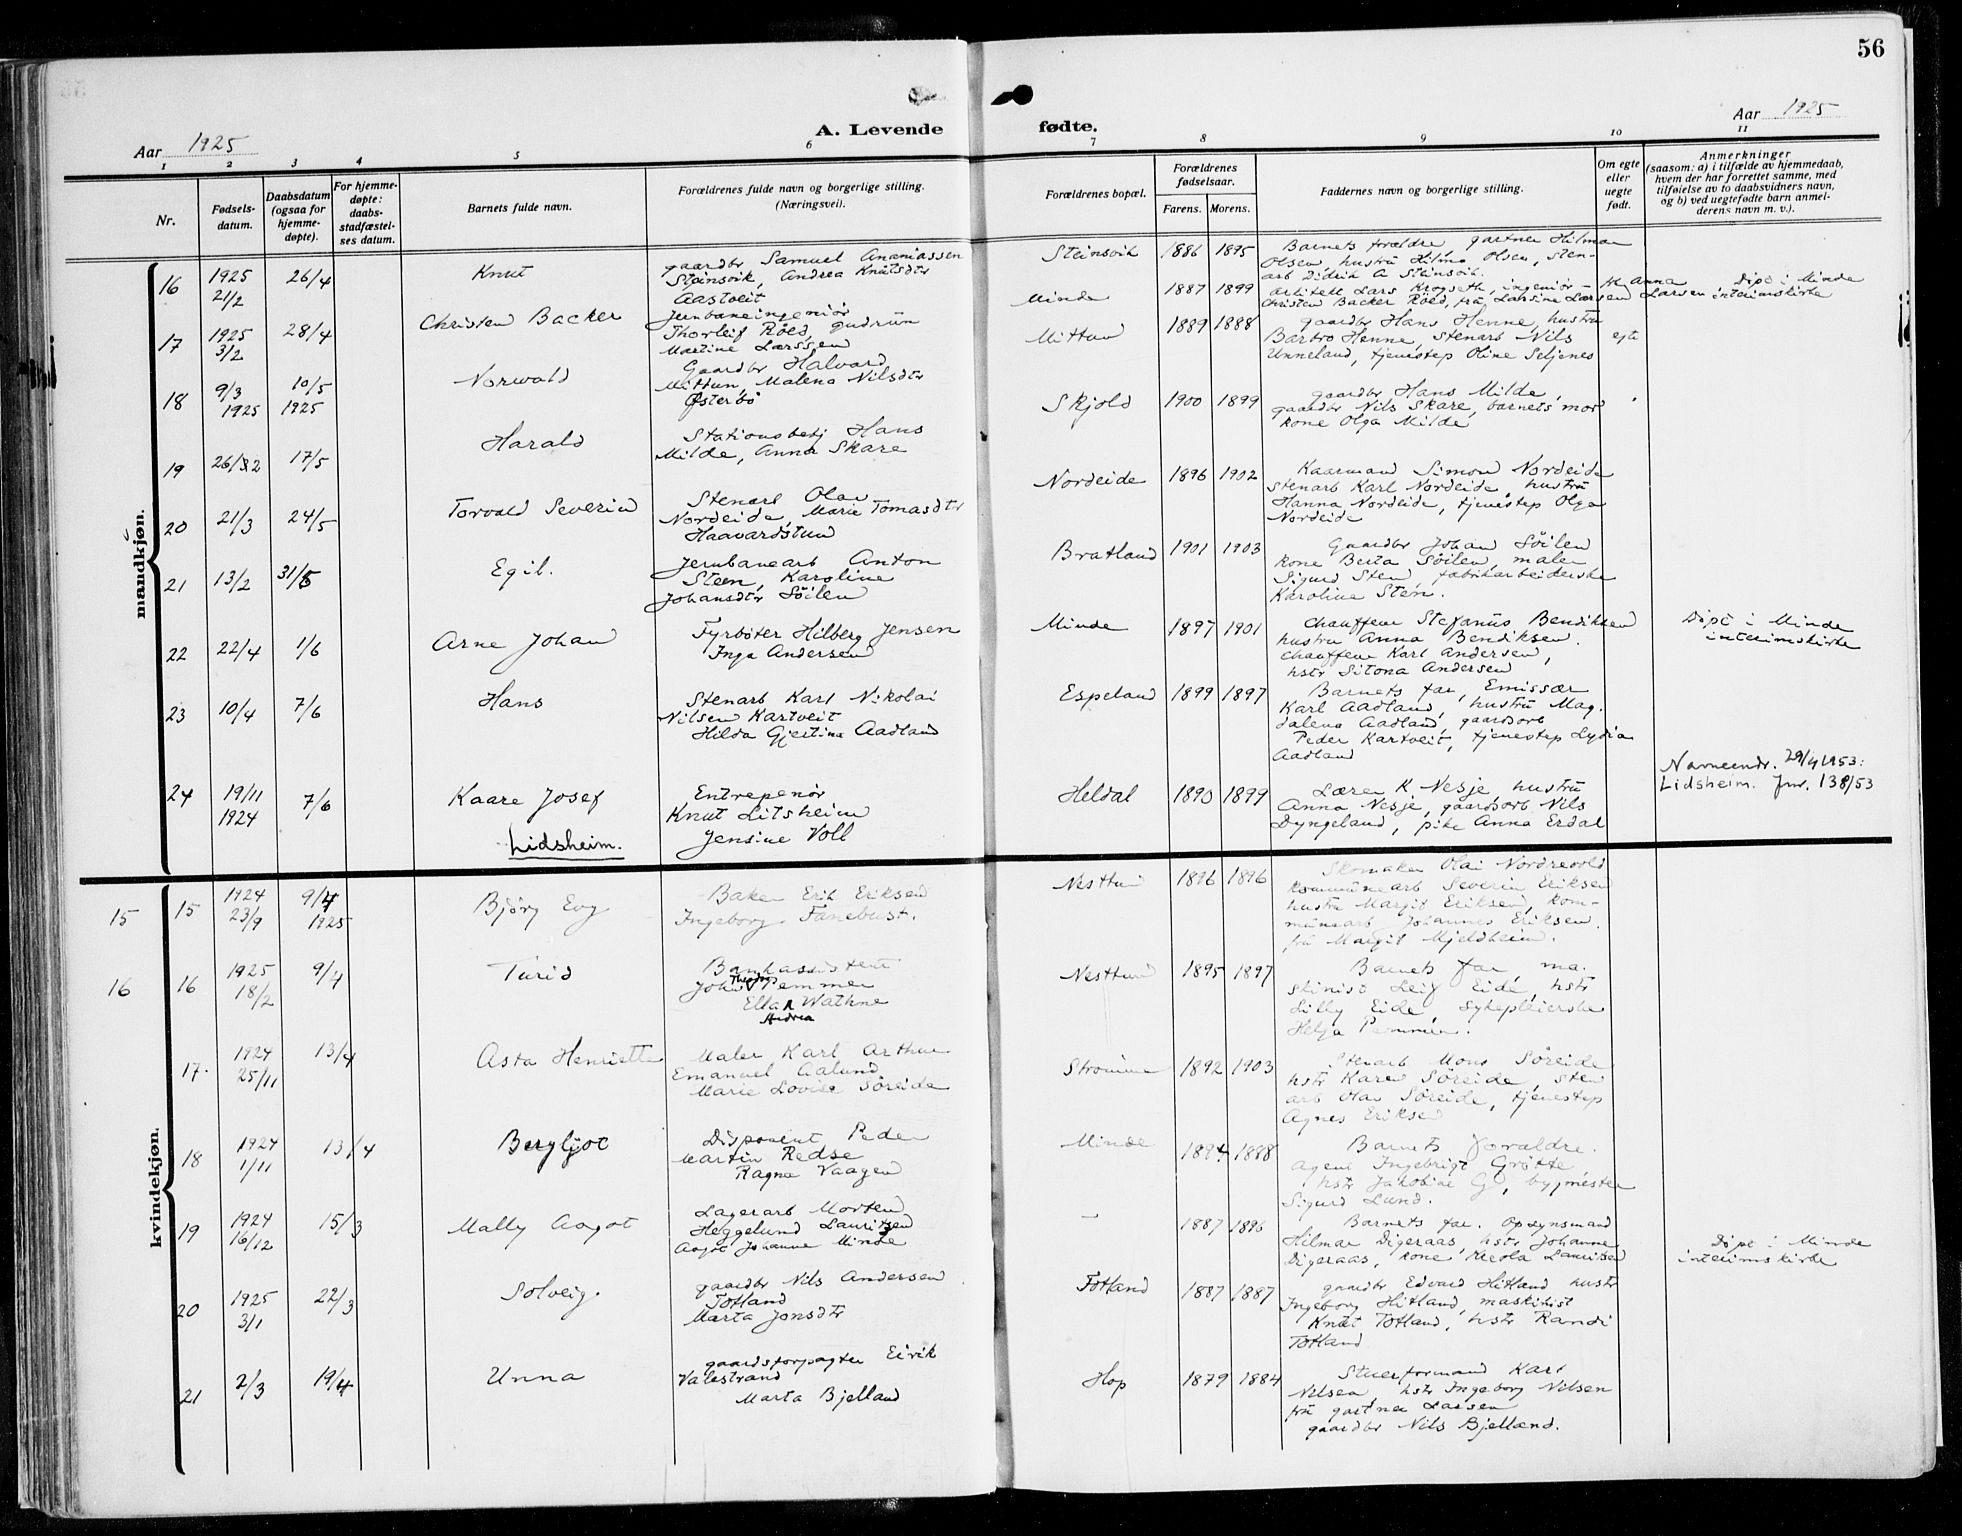 56
A. Levende fødte.
Aar 1925
Aar 1925
1 2 3 4 5 6 7 8 9 10 11
Nr.
Fødsels-
datum.
Daabsdatum
(ogsaa for
hjemme-
døpte).
For hjemme-
døpte:
daabs-
stadfæstel-
ses datum.
Barnets fulde navn.
Forældrenes fulde navn og borgerlige stilling.
(Næringsvei).
Forældrenes bopæl.
Forældrenes
fødselsaar.
Farens. Morens.
Faddernes navn og borgerlige stilling.
Om egte
eller
uegte
født.
Anmerkninger
(saasom: a) i tilfælde av hjemmedaab,
hvem der har forrettet samme, med
tilføielse av to daabsvidners navn,
og b) ved uegtefødte barn anmel-
derens navn m. v.).
mandkjøn.
16
1925
21/2
26/4
Knut
gaardbr Samuel Ananiassen
Steinsvik, Andrea Knutsdtr
Aastveit
Steinsvik 1886 1895
Barnets forældre gartner Hilmar
Olsen hustru Hilma Olsen, sten-
arb Didrik A Steinsvik.
17
1925
3/2
28/4
Christen Backer
Jernbaneingeniør
Thorleif Røed, Gudrun
Martine Larssen
Minde 1887 1899
arkitekt Lars Krogseth, ingeniør
Christen Backer Røed, fru Larsine Larsen
Anna
Larsen
Døpt i Minde
interimskirke
18
9/3
1925
10/5
1925
Norvald
Gaardbr Halvard
Mittun, Malena Nilsdtr
Østerbø
Mittun 1889 1888
gaardbr Hans Henne, hustru
Barbro Henne, stenarb Nils
Unneland, tjenestep Oline Seljenes
egte
19
26/2
17/5
Harald
Stationsbetj Hans
Milde, Anna Skare
Skjold 1900 1899
gaardbr Hans Milde,
gaardbr Nils Skare, barnets mor
kone Olga Milde
20
21/3
24/5
Torvald Severin
Stenarb Olav
Nordeide, Marie Tomasdtr
Haavardstun
Nordeide 1896 1902
Kaarmand Simon Nordeide
stenarb Karl Nordeide, hustru
Hanna Nordeide, tjenestep Olga
Nordeide
21
13/2
31/5
Egil.
Jernbanearb Anton
Steen, Karoline
Johansdtr Søilen
Bratland 1901 1903
Gaardbr Johan Søilen
kone Berta Søilen, maler
Sigurd Sten, fabrikarbeiderske
Karoline Sten.
22
22/4
1/6
Arne Johan
Fyrbøter Hilberg Jensen
Inga Andersen
Minde 1897 1901
chauffeur Stefanus Bendiksen
hustru Anna Bendiksen.
chauffeur Karl Andersen,
hstr Sitona Andersen
Døpt i Minde
interimskirke
23
10/4
7/6
Hans
Stenarb Karl Nikolai
Nilsen Kartveit
Hilda Gjertina Aadland
Espeland 1899 1897
Barnets far, Emissær
Karl Aadland, hustru Mag-
dalena Aadland, gaardsarb
Peder Kartveit, tjenestep Lydia
Aadland
24
19/11
1924
7/6
Kaare Josef
Lidsheim.
Entrepenør
Knut Litsheim
Jensine Voll
Heldal 1890 1899
Lærer K Nesje, hustru
Anna Nesje, gaardsarb Nils
Dyngeland, pike Anna Erdal
Navneendr. 29/4 1953:
Lidsheim. Jnr. 138/53
kvindekjøn.
15 15
1924
23/9
9/4
1925
Bjørg Evy
Baker Erik Eriksen
Ingeborg Fanebust.
Nesttun 1896 1896
Skomaker Olai Nordrevold
kommunearb Severin Eriksen
hustru Margit Eriksen, kom-
munearb Johannes Eriksen.
fru Margit Mjeldheim.
16 16
1925
18/2
9/4
Turid
Bankassistent
John Pemmer
Ella Wathne
Andrea
Nesttun 1895 1897
Barnets far, ma-
skinist Leif Eide, hstr
Lilly Eide, sykepleierske
Helga Pemmer.
17.
1924
25/11
13/4
Asta Henriette
Maler Karl Arthur
Emanuel Aalund
Marie Lovise Søreide
Strømme 1892 1903
Stenarb Mons Søreide
hstr Karen Søreide, sten
arb Olav Søreide, tjenestep
Agnes Eriksen
18
1924
1/11
13/4
Bergljot
Disponent Peder
Martin Redse
Ragna Vaagen
Minde 1894 1888
Barnets forældre.
agent Ingebrigt Grøtte,
hstr Jakobine G, bygmester
Sigurd Lund.
19
1924
16/12
15/3
Mally Aagot
Lagerarb Morten
Heggelund Lauritsen
Aagot Johanne Minde
— 1887 1896
Barnets far. Opsynsmand
Hilmar Digeraas, hstr Johanne
Digeraas, kone Lauritsen
Døpt i Minde
interimskirke
20
1925
3/1
22/3
Solveig.
gaardbr Nils Andersen
Totland
Marta Jonsdtr
Totland 1887 1887
gaardbr Edvard Hitland hustr
Ingeborg Hitland, maskinist
Knut Totland, hstr Randi
Totland
21
2/3
19/4
Unna
gaardsforpagter Eirik
Valestrand
Marta Bjelland
Hop 1879 1884
Stuerformand Karl
Nilsen, hstr Ingeborg Nilsen
fru gartner Larsen
gaardbr Nils Bjelland.